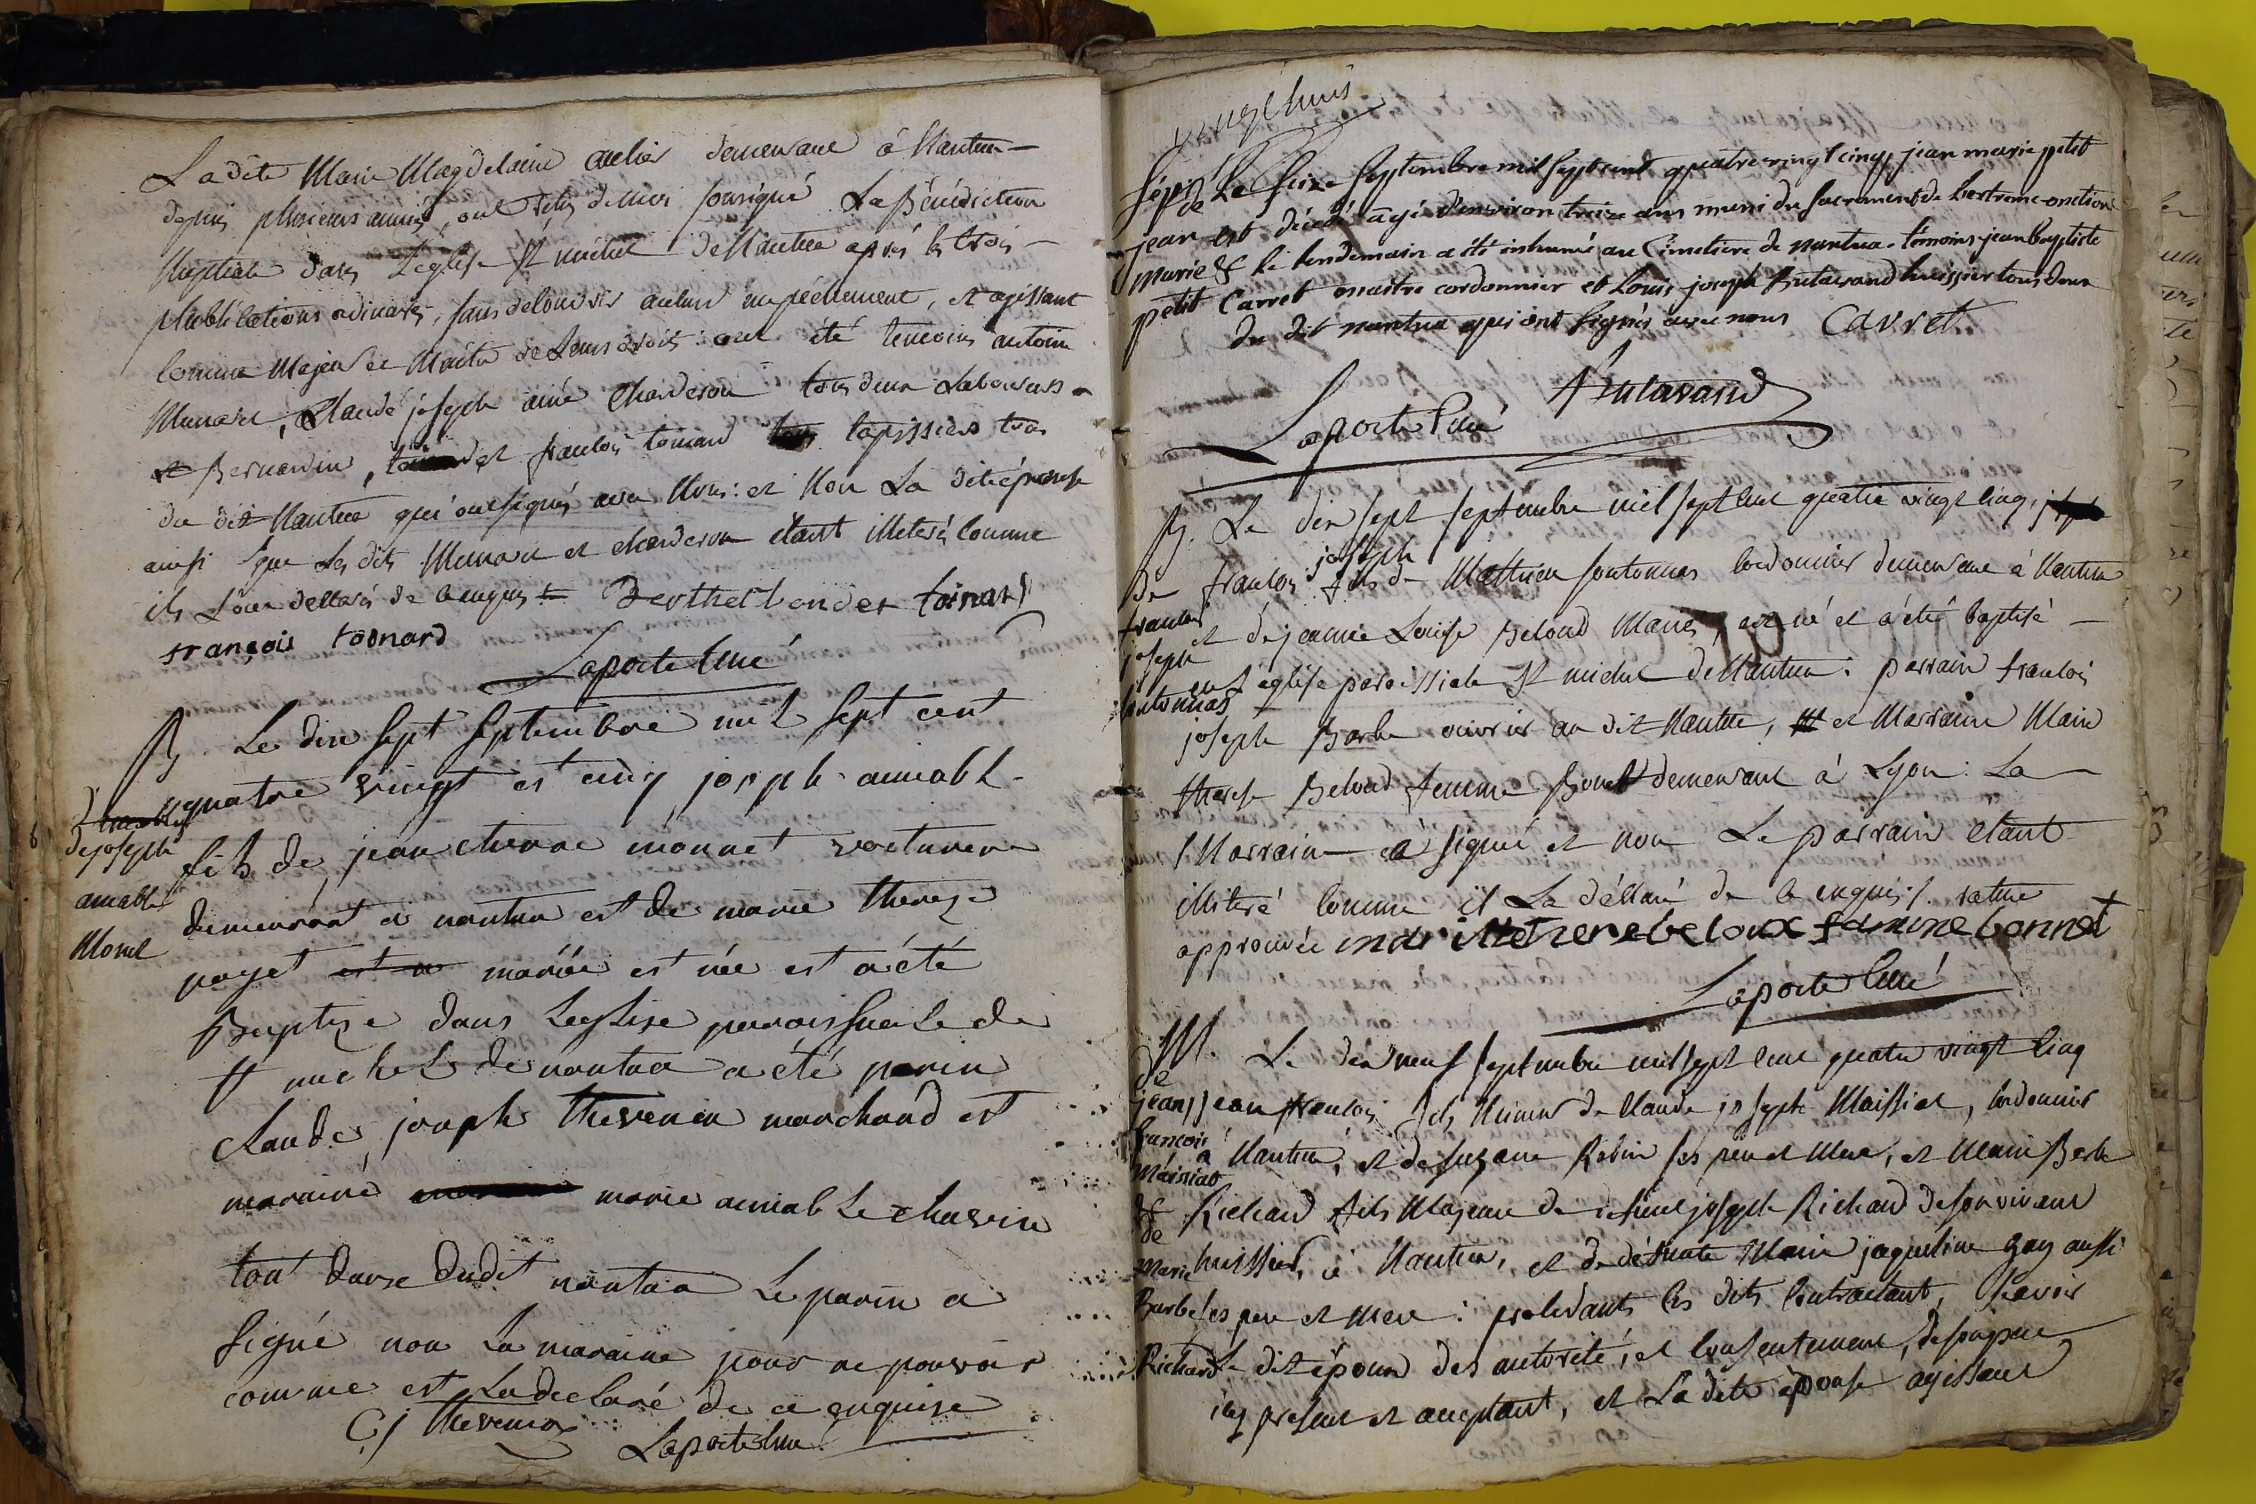 La dite Marie Magdelaine demeurant à Nantua
depuis plusieurs années, ont reçu de moi soussigné La Bénédiction
Nuptiale dans L'eglise St michel de Nantua après les trois
Publications ordinaires, sans decouvrir aucun empéchement, et agissant
comme Majeur et Maitre de Leurs droits: ont été temoins antoine
Munaret, Claude joseph aimé Charderon tous deux Laboureurs
et Bernardin, et francois toinard tapissiers tous
du dit Nantua qui ont signés avec Nous: et Non La dite épouse
ainsi que Les dits Munaret et charderon étant illeterés comme
ils L'ont declaré de ce enquis Berthet bender toinard
françois toonard
Laporte Curé
B Le dix Sept Septembre mil Sept cent
quatre vingt et cinq joseph aimable
de joseph
aimable
Monet
fils de jean etienne monnet voiturier
demeurant a nantua et de marie thereze
poget mariés est née est a été
Baptize dans Leglise paroissiale de
St michel de nantua a été parin
claude joseph thevenin marchand et
maraine marie aimable chavein
tout deuxe dudit nantua Le parin a
Signé non La maraine pour ne pouvoir
comme est La declaré de ce enquise
C j thevenin Laporte Curé
vingt huit
Sép.re de Le Seize Septembre mil Sept cent quatre vingt cinq, jean marie petit
jean est décédé agé d'environ treize ans muni du Sacrement de L'extreme-onction
marie & le lendemain a été inhumé au Cimetiere de nantua. témoins jean baptiste
petit Carret maitre cordonnier et Louis joseph huissier tous deux
du dit nantua qui ont Signés avec nous Carret
Laporte Curé
B. Le dix sept septembre mil sept cent quatre vingt cinq,
De francois joseph fils de Mathieu Jontomas cordonnier demeurant à Nantua
francois
joseph
et de jeanne Louise Beloud Mariés, est né et a été baptisé
en L'église paroissiale St michel de Nantua: parrain francois
joseph Barbe ouvrier au dit Nantua, et Marraine Marie
therese Beloud femme Bonet demeurant à Lyon: La
Marraine a signé et non Le parrain étant
illiteré comme il La déclaré de ce enquis. rature
approuvée marittetherebeloux famme bonnet
Laporte Curé
M. Le dix neuf septembre mil sept cent quatre vingt cinq
de
jean
francois
Maissiat
&
de
Marie
Barbe
Richard
jean francois fils Mineur de Claude joseph Maissiat, cordonnier
à Nantua, et de suzanne Robin ses pere et Mere, et Marie Barbe
Richard fille Majeure de defunt joseph Richard de son vivant
huissier, à Nantua, et de défunte Marie jaqueline Gay aussi
ses pere et mere: procédants les dits contractant, sçavoir
Le dit époux des autorité, et consentement, de son pere
icy present et acceptant, et La dite épouse agissant